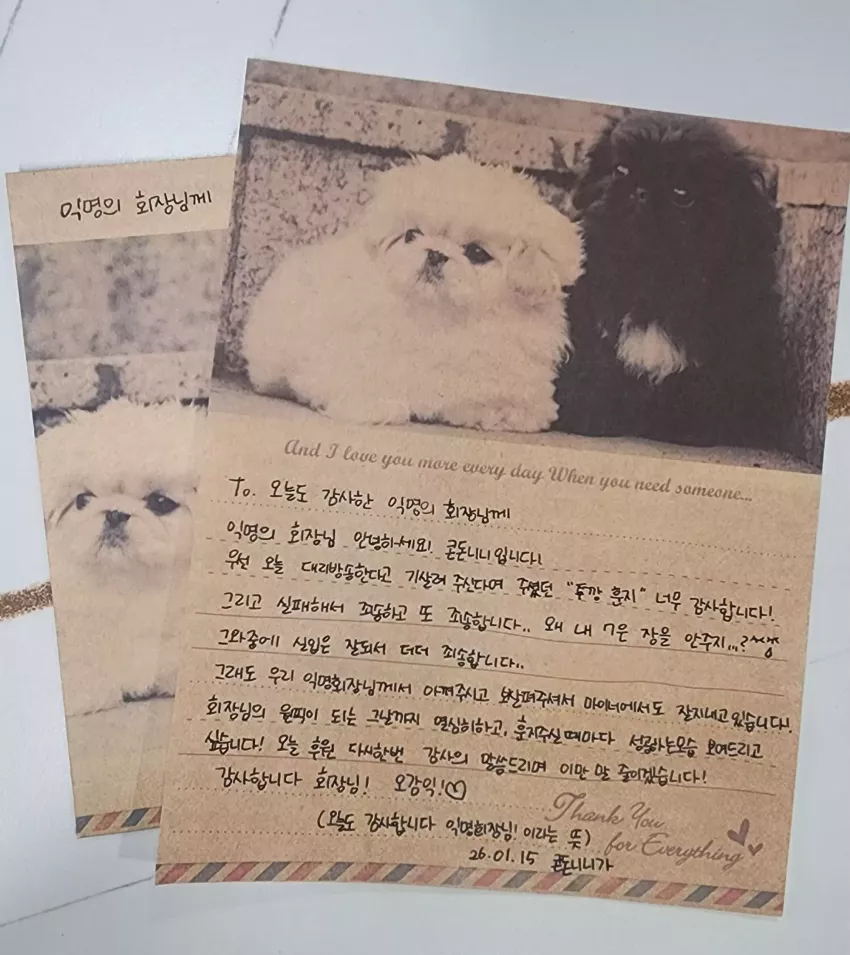 익명의 회장님께
And I love you more every day When you need someone...
To. 오늘도 감사한 익명의 회장님께
익명의 회장님 안녕하세요! 콘돈니니입니다!
우선 오늘 대리방송한다고 기살려 주신다며 주셨던 "존깡 훈지" 너무 감사합니다!
그리고 실패해서 죄송하고 또 죄송합니다.. 왜 내 7운 장을 안주지...?
그와중에 실입은 잘되서 더더 죄송합니다..
그래도 우리 익명회장님께서 아껴주시고 보살펴주셔서 마이너에서도 잘지내고있습니다!
회장님의 원픽이 되는 그날까지 열심히하고, 훈지주실때마다 성공하는모습 보여드리고
싶습니다! 오늘 후원 다시한번 감사의 말씀드리며 이만 말 줄이겠습니다!
감사합니다 회장님! 오감익!♡
(오늘도 감사합니다 익명회장님! 이라는 뜻)
Thank You
for Everything
26.01.15 콘돈니니가